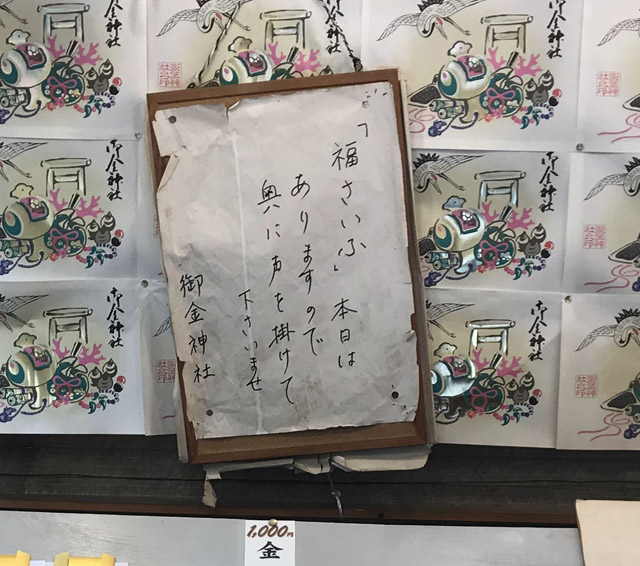 「福さいふ」本日は
ありますので
奥に声を掛けて
下さいませ
御金神社
御金神社
御金神社
御金神社
御金神社
御金神社
御金神社
御金神社
御金神社
1,000円
金